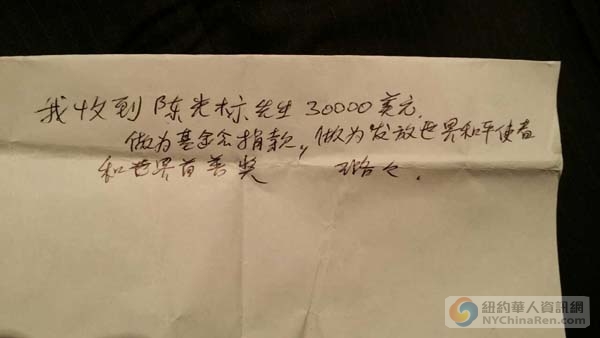 我收到陈光标先生30000美元.
做为基金会捐款,,做为发放世界和平使者
和世界首善奖 璐々.
紐約華人資訊網
NYChinaRen.com